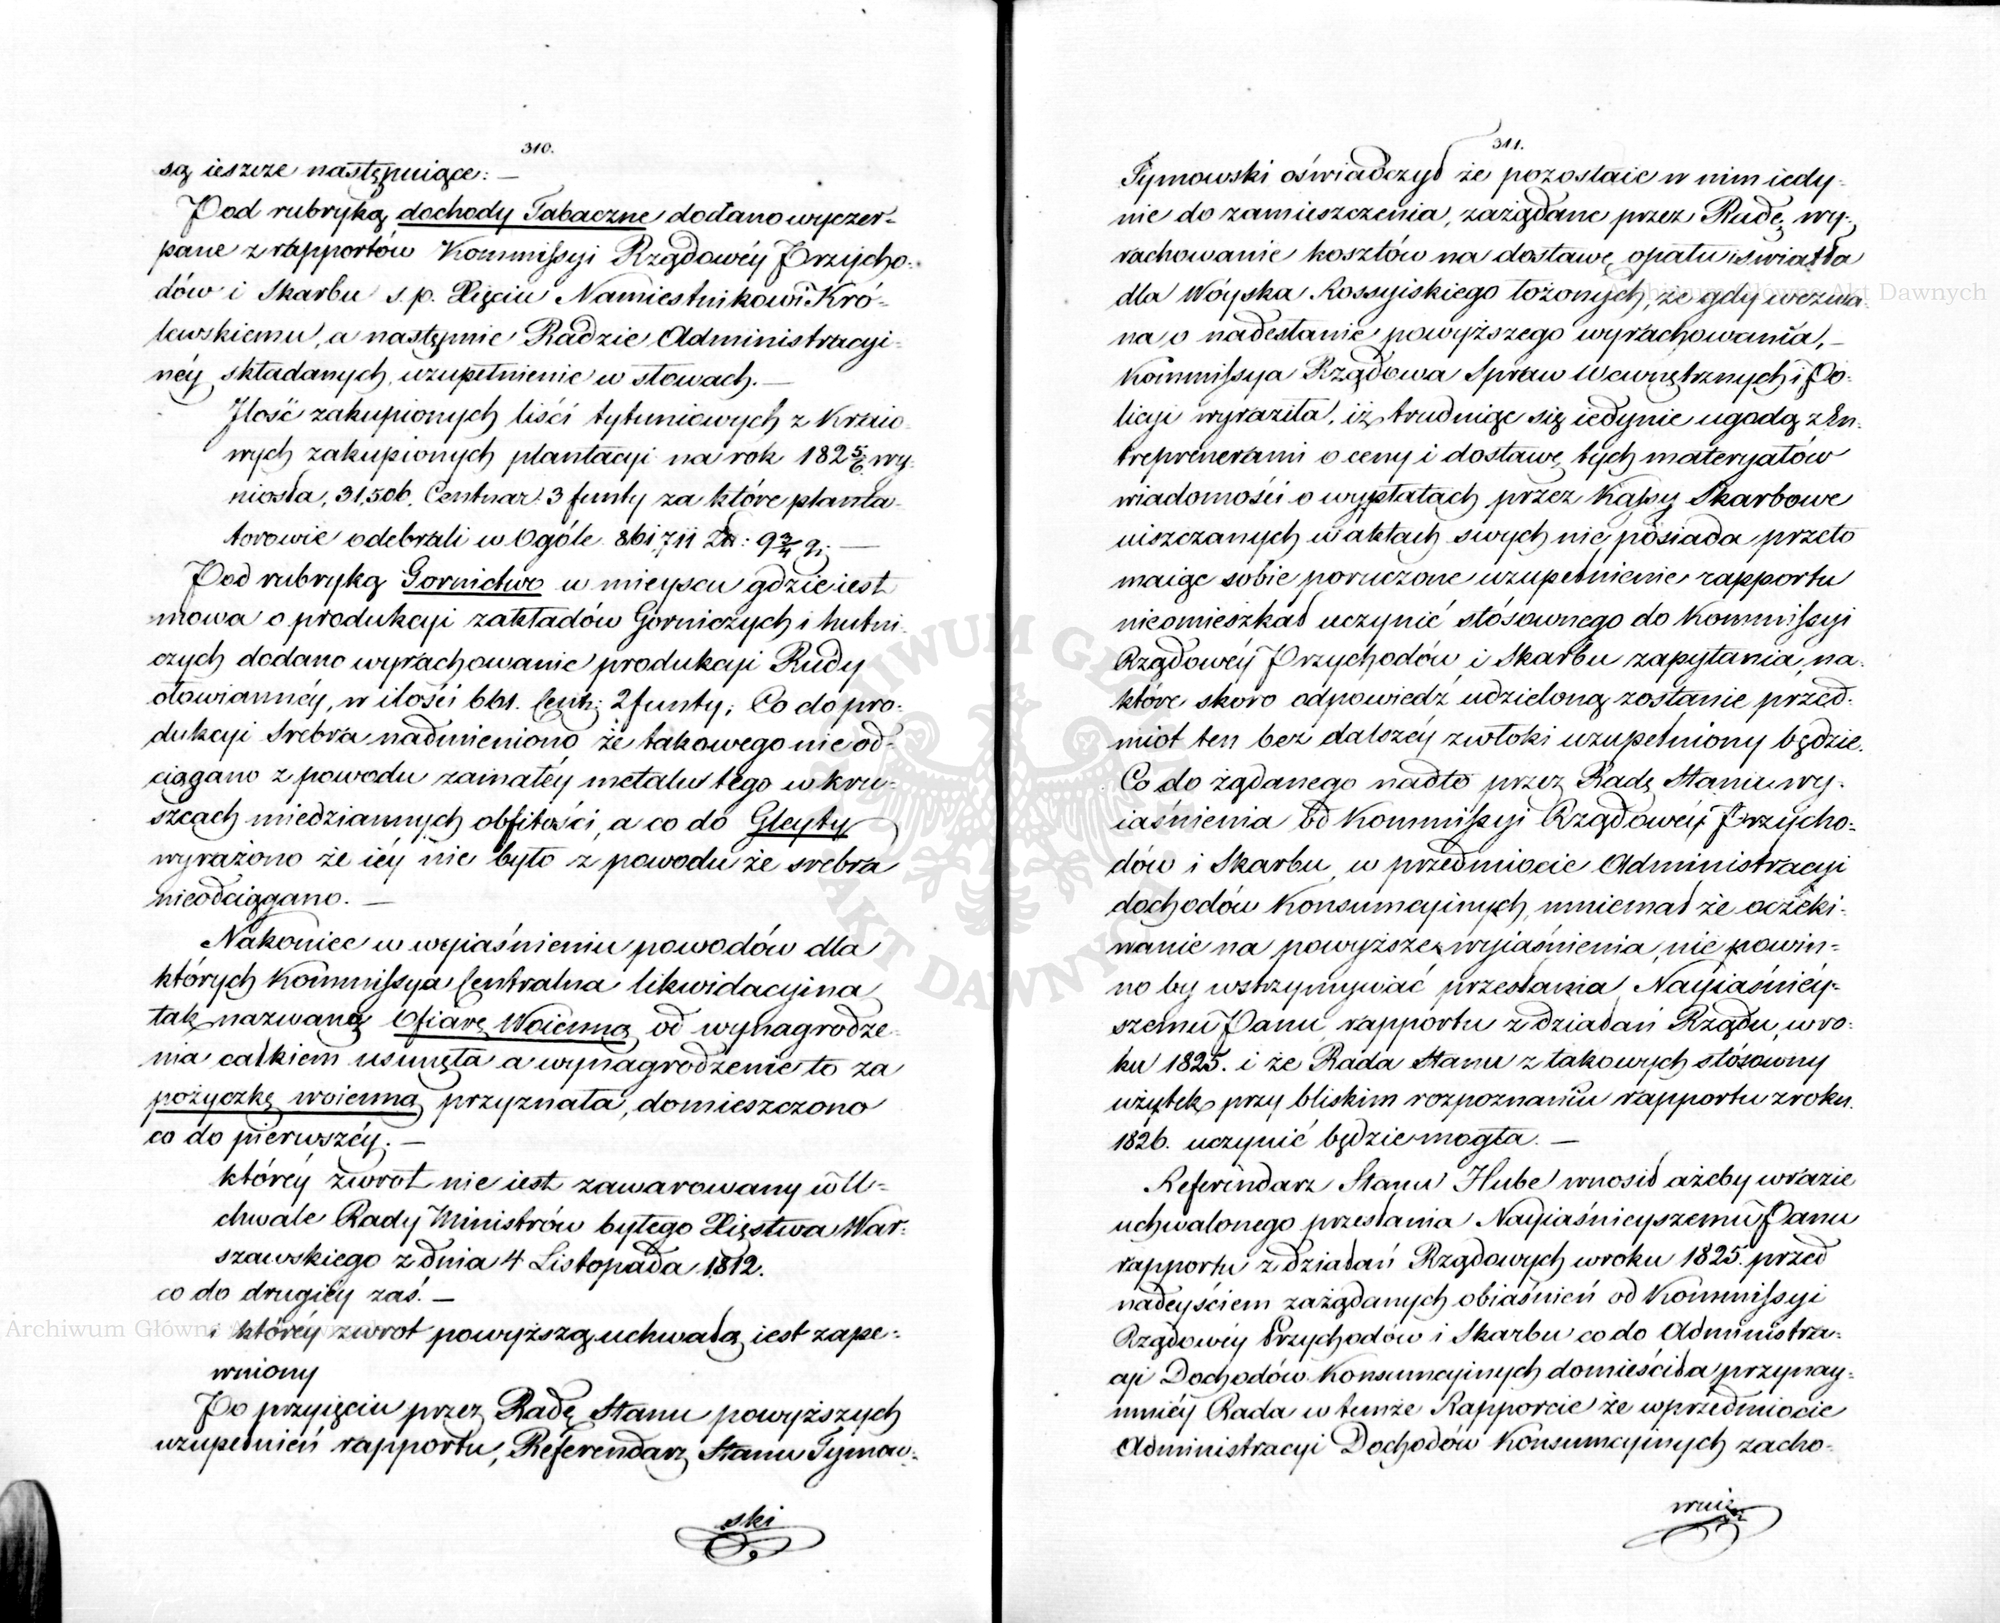 310.
są ieszcze następuiące: —
Pod rubryką dochody Tabaczne dodano wyczer-
pane z rapportów Kommissyi Rządowéy Przycho-
dów i Skarbu s.p. Xięciu Namiestnikowi Kró-
lewskiemu, a następnie Radzie Administracyi-
néy składanych uzupełnienie w słowach. —
Ilość zakupionych liści tytuniowych z Kraio-
wych zakupionych plantacyi na rok 1825/6 wy-
niosła, 31,506. Centnar: 3 funty za które planta-
torowie odebrali w Ogóle 861,711 Zł: 9 3/4 g: —
Pod rubryką Gornictwo w mieyscu gdzie iest
mowa o produkcyi zakładów Górniczych i hutni-
czych dodano wyrachowanie produkcyi Rudy
ołowiannéy, w ilości 661. Cent: 2 funty; Co do pro-
dukcyi Srebra nadmieniono że takowego nie od-
ciągano z powodu zamałéy metalu tego w kru-
szcach miedziannych obfitości, a co do Gleyty
wyrażono że iéy nie było z powodu że srebra
nieodciągano. —
Nakoniec w wyiaśnieniu powodów dla
których Kommissya Centralna likwidacyina
tak nazwaną Ofiarę Woienną od wynagrodze-
nia całkiem usunęła a wynagrodzenie to za
pożyczkę woienną przyznała, domieszczono
co do pierwszéy. —
któréy zwrot nie iest zawarowany w U-
chwale Rady Ministrów byłego Xięstwa War-
szawskiego z dnia 4 Listopada 1812.
co do drugiéy zaś. —
i któréy zwrot powyższą uchwałą iest zape-
wniony
Po przyięciu przez Radę Stanu powyższych
uzupełnień rapportu, Referendarz Stanu Tymow-
ski
311.
Tymowski oświadczył że pozostaie w nim iedy-
nie do zamieszczenia, zażądane przez Radę wy-
rachowanie kosztów na dostawę opału i światła
dla Wóyska Rossyiskiego łożonych, że gdy wezwa-
na o nadesłanie powyższego wyrachowania, —
Kommissya Rządowa Spraw Wewnętrznych i Po-
licyi wyraziła, iż trudniąc się iedynie ugodą z En-
treprenerami o ceny i dostawę tych materyałów
wiadomości o wypłatach przez Kassy Skarbowe
uiszczanych w aktach swych nie posiada przeto
maiąc sobie poruczone uzupełnienie rapportu
nieomieszkał uczynić stósownego do Kommissyi
Rządowéy Przychodów i Skarbu zapytania, na
które skoro odpowiedź udzieloną zostanie przed-
miot ten bez dalszéy zwłoki uzupełniony będzie.
Co do żądanego nadto przez Radę Stanu wy-
iaśnienia od Kommissyi Rządowéy Przycho-
dów i Skarbu w przedmiocie Administracyi
dochodów Konsumcyinych, mniemał że oczeki-
wanie na powyższe wyiaśnienia, nie powin-
no by wstrzymywać przesłania Nayiaśniéy-
szemu Panu rapportu z działań Rządu w ro-
ku 1825. i że Rada Stanu z takowych stósowny
użytek przy bliskim rozpoznaniu rapportu z roku
1826. uczynić będzie mogła. —
Referendarz Stanu Hube wnosił ażeby w razie
uchwalonego przesłania Nayiaśnieyszemu Panu
rapportu z działań Rządowych w roku 1825. przed
nadeyściem zażądanych obiaśnień od Kommissyi
Rządowéy Przychodów i Skarbu co do Administra-
cyi Dochodów Konsumcyinych domieściła przynay-
mniéy Rada w temże Rapporcie że w przedmiocie
Administracyi Dochodów Konsumcyinych zacho-
wuie
ARCHIWUM GŁÓWNE AKT DAWNYCH
Archiwum Główne Akt Dawnych
Archiwum Główne Akt Dawnych